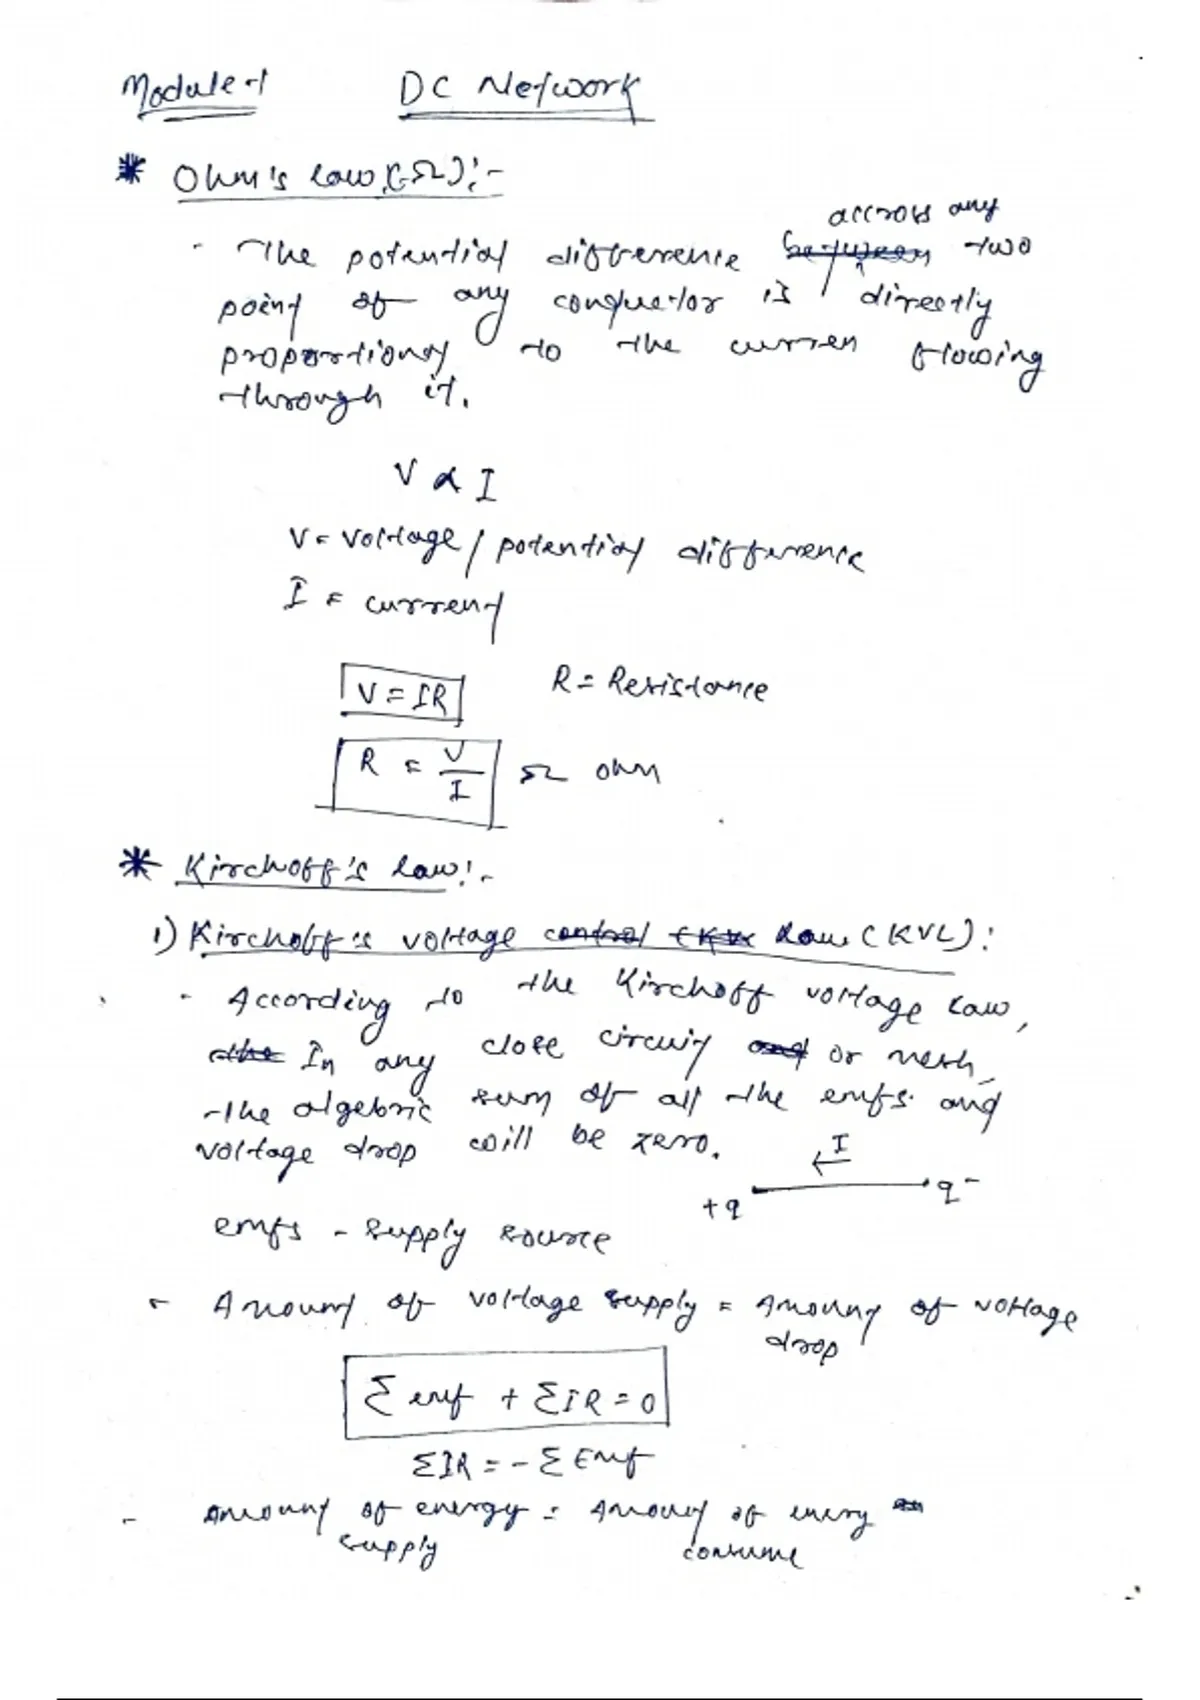 Module-1 DC Network
* Ohm's law (Ω):-
accross any
- The potential difference between two
point of any conductor is directly
proportional to the curren flowing
through it.
V ∝ I
V = voltage / potential difference
I = current
V = IR R = Resistance
R = V/I Ω ohm
* Kirchoff's law:-
1) Kirchoff's voltage control law (KVL):
- According to the Kirchoff voltage law,
the In any close circuit and or mesh,
the algebric sum of all the emfs and
voltage drop will be zero.
I
+q q-
emfs - supply source
- Amount of voltage supply = Amount of voltage
drop
Σ emf + ΣIR = 0
ΣIR = - Σ Emf
- Amount of energy = Amount of enery
supply consume